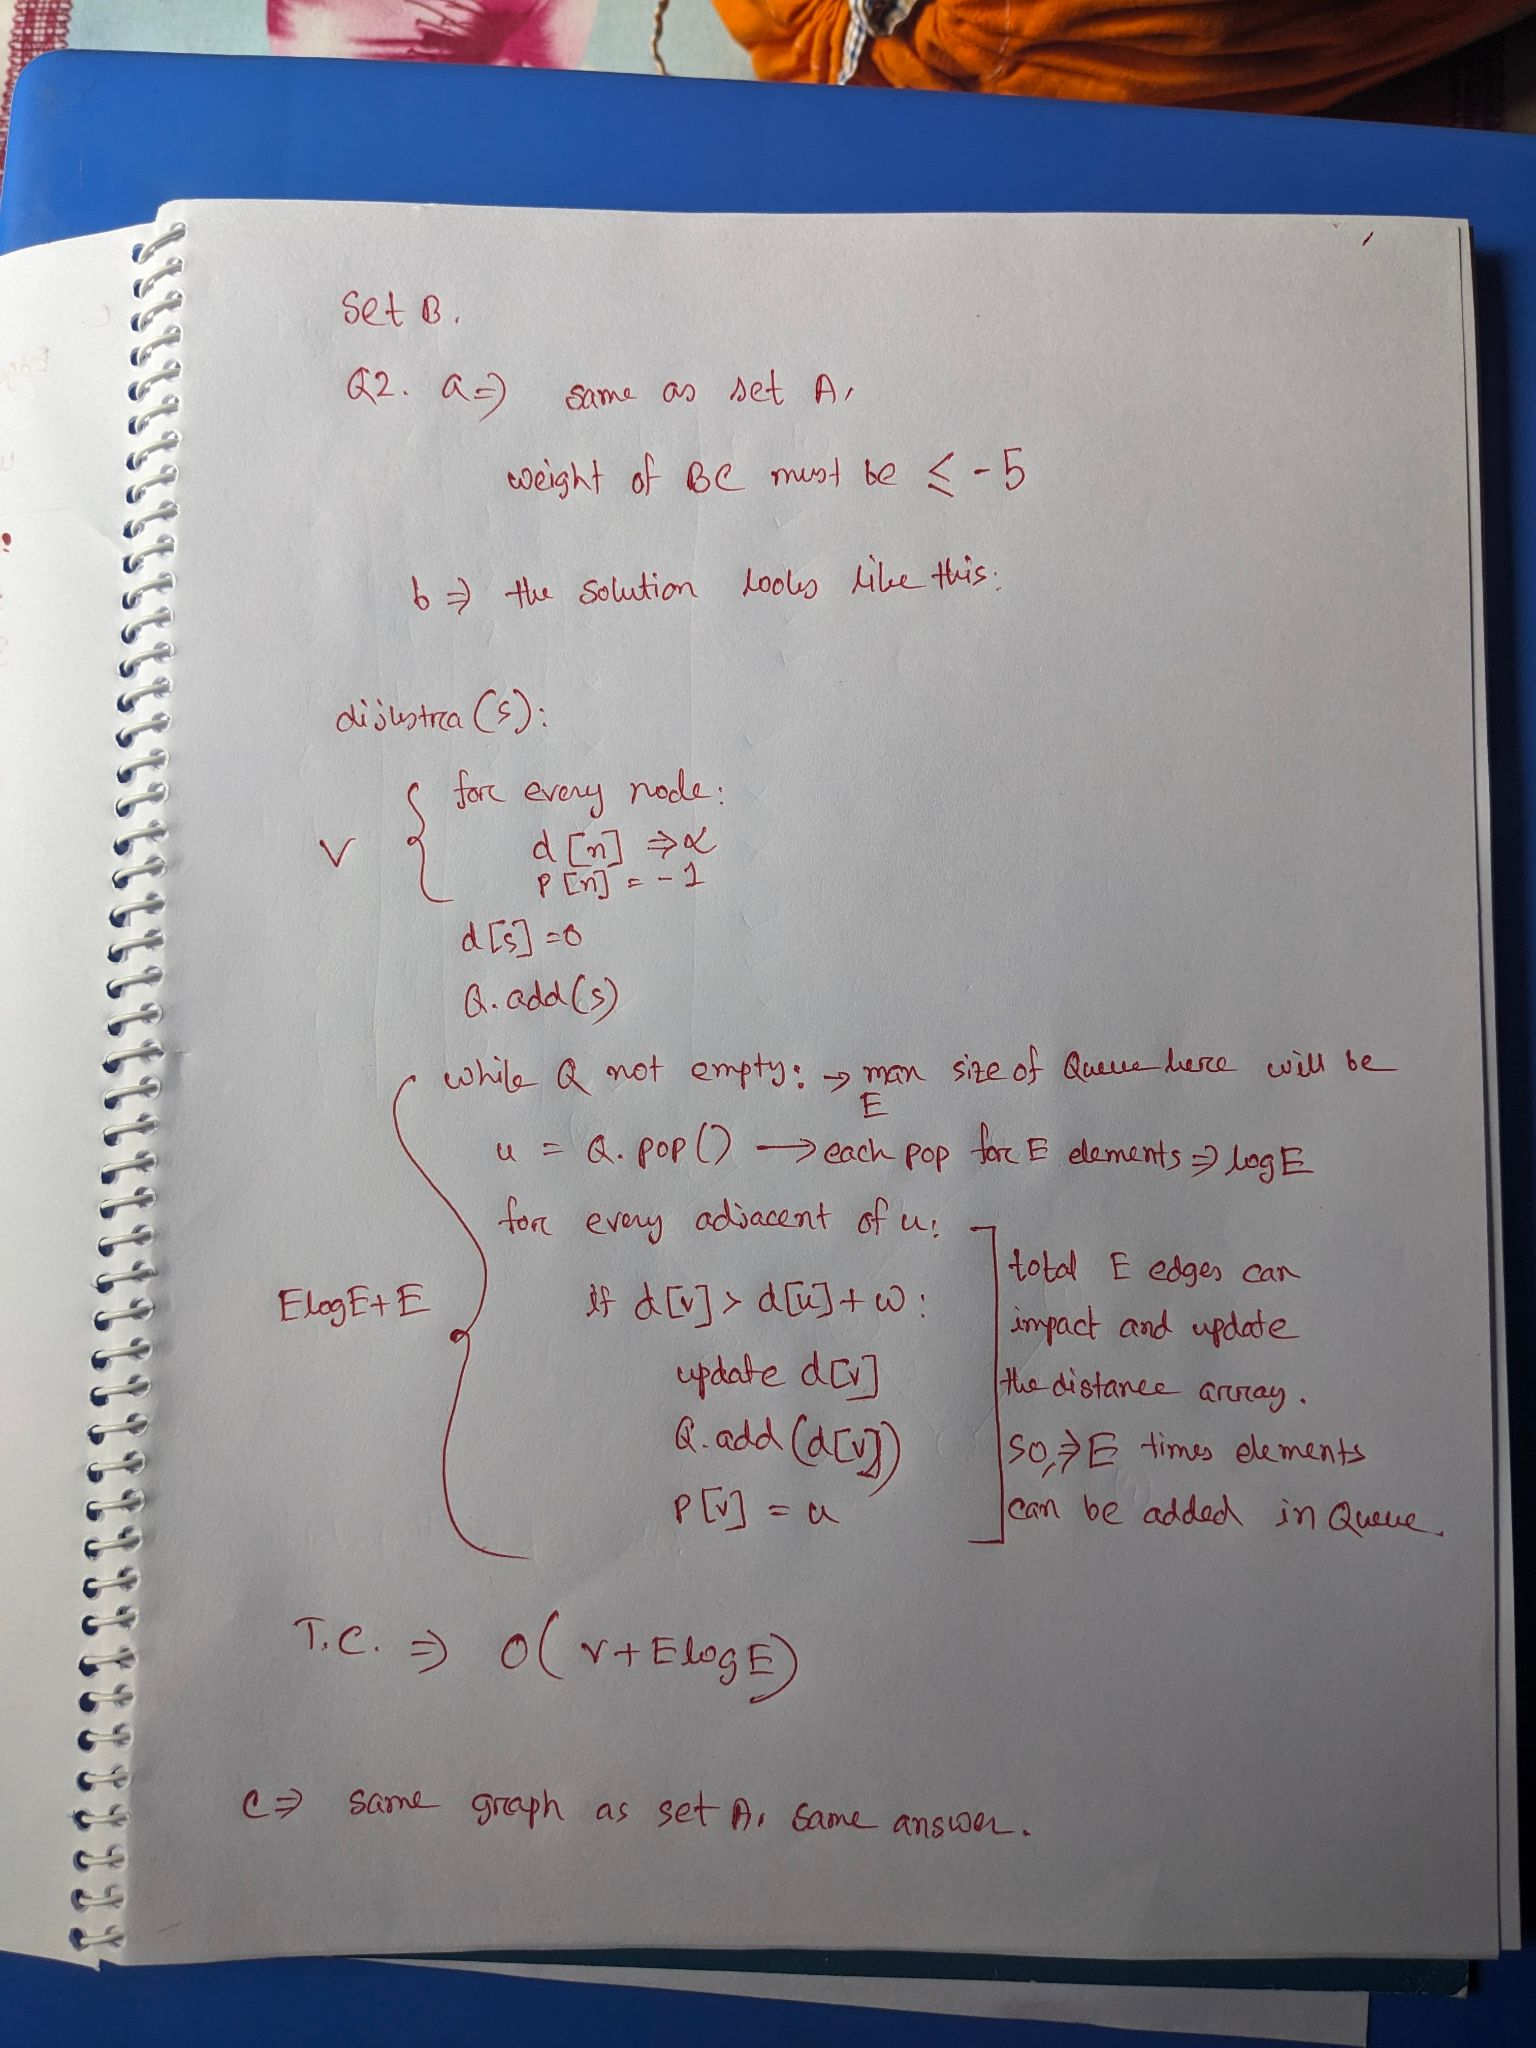 Set B.
Q2. a⇒ same as set A.
weight of BC must be ≤ -5
b ⇒ the solution looks like this:
dijkstra (s):
V
for every node:
d [n] ⇒ α
P [n] = -1
d [s] = 0
Q. add (s)
while Q not empty: → max size of Queue here will be
E
u = Q. pop () → each pop for E elements ⇒ log E
for every adjacent of u:
ElogE + E
if d[v] > d[u] + w :
update d[v]
Q. add (d[v])
P [v] = u
total E edges can
impact and update
the distance array.
so, ⇒ E times elements
can be added in Queue.
T.C. ⇒ O( V + E log E)
c ⇒ same graph as set A. same answer.